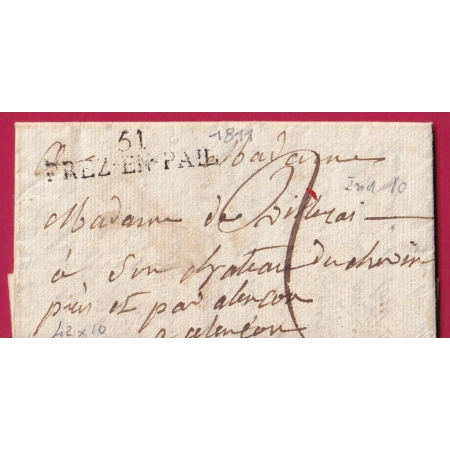 51
PREZ-EN-PAIL
1811
A Madame
Ind 10
Madame de
à Son chateau du chesne
près et par alençon
42 x 10
a alençon